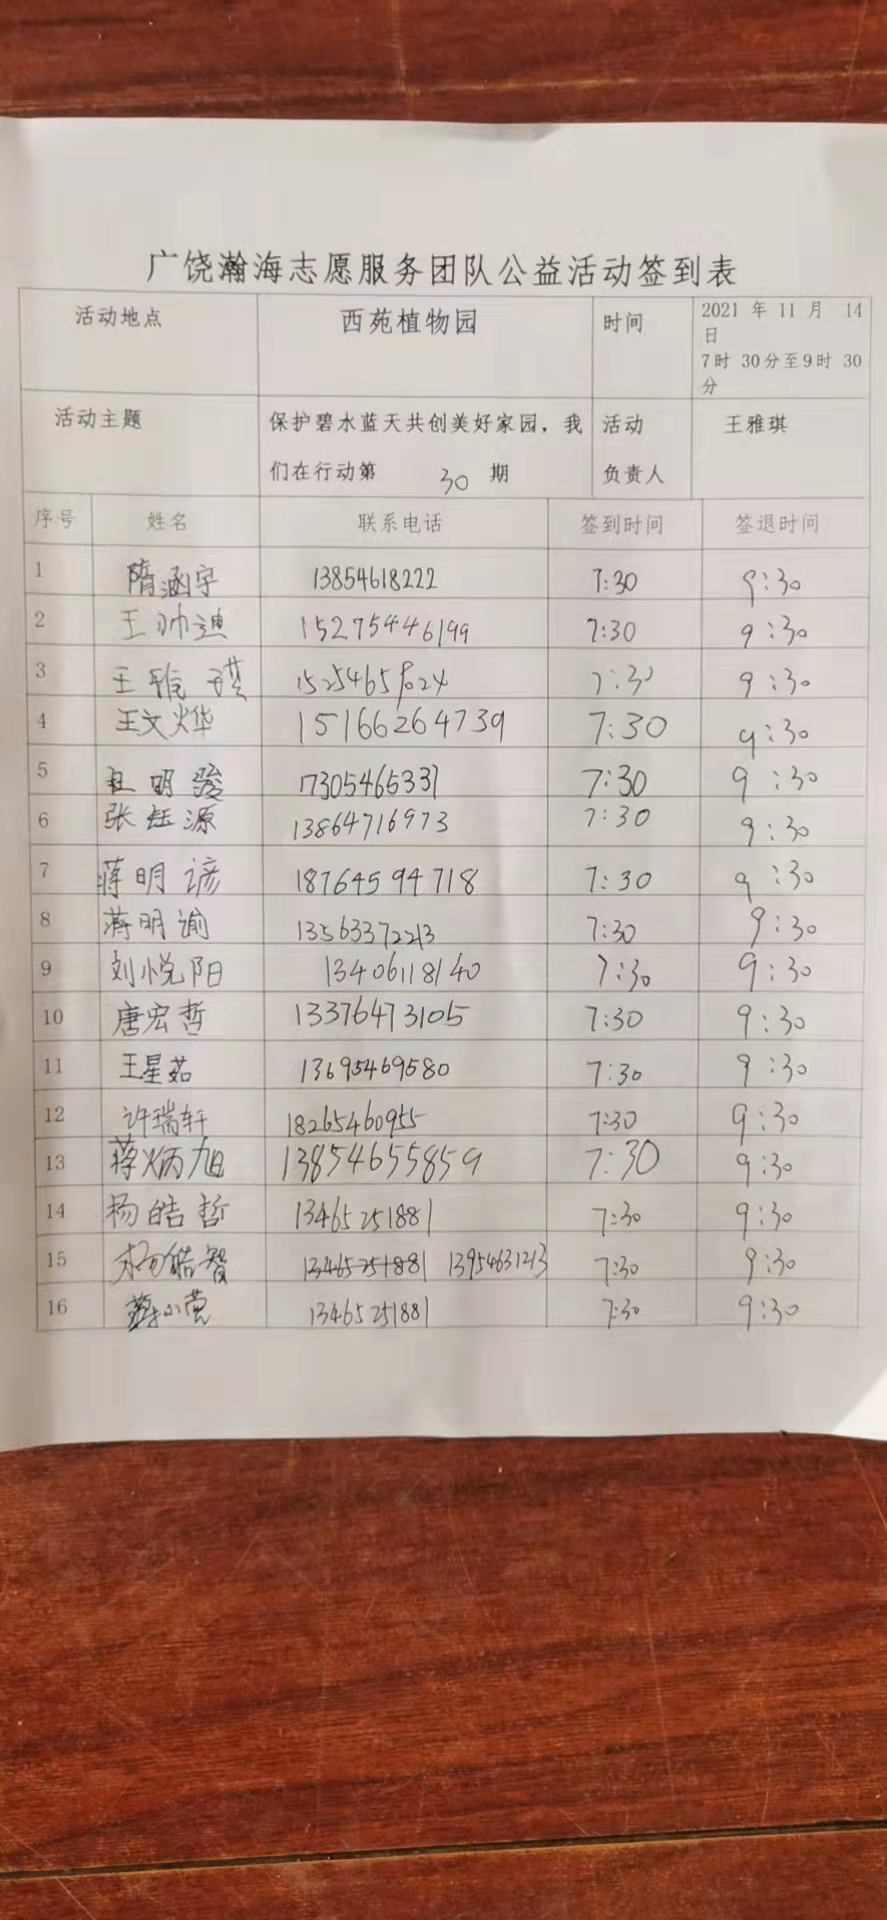 广饶瀚海志愿服务团队公益活动签到表
活动地点 西苑植物园 时间 2021 年 11 月 14 日
7时 30分至9时 30分
活动主题 保护碧水蓝天共创美好家园，我 活动 王雅琪
们在行动第 30 期 负责人
序号 姓名 联系电话 签到时间 签退时间
1 隋涵宇 13854618222 7:30 9:30
2 王帅迪 15275446199 7:30 9:30
3 王雅琪 7:30 9:30
4 王文烨 15166264739 7:30 9:30
5 杜明骏 17305465331 7:30 9:30
6 张钰源 13864716973 7:30 9:30
7 蒋明谚 18764594718 7:30 9:30
8 蒋明谕 13563372213 7:30 9:30
9 刘悦阳 13406118140 7:30 9:30
10 唐宏哲 13376473105 7:30 9:30
11 王星茹 13695469580 7:30 9:30
12 许瑞轩 18265460955 7:30 9:30
13 蒋炳旭 13854655859 7:30 9:30
14 杨皓哲 13465251881 7:30 9:30
15 杨皓智 13465251881 13954631213 7:30 9:30
16 13465251881 7:30 9:30